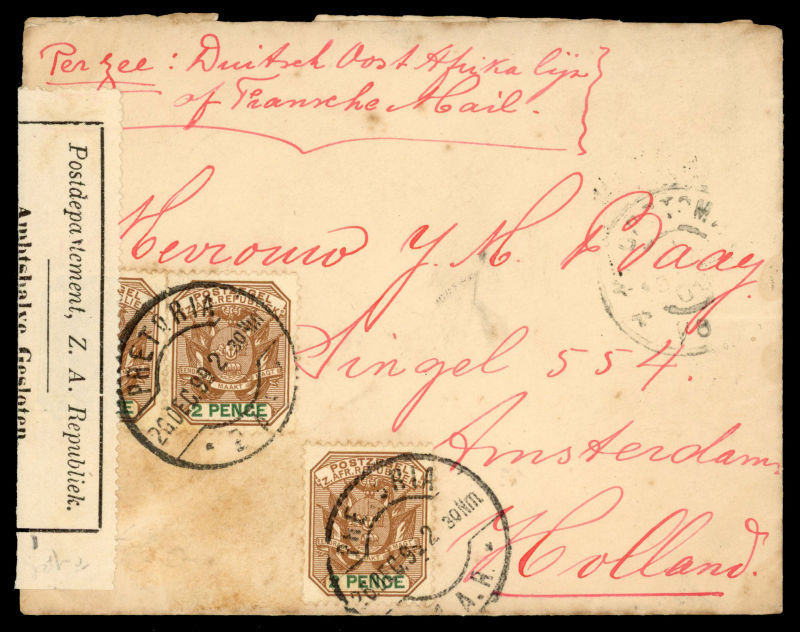 Per zee: Duitsch Oost Afrika lijn
of Fransche Mail.
Mevrouw J. M. Baay
Singel 554.
Amsterdam
Holland.
Postdepartement, Z. A. Republiek.
Ambtshalve Gesloten
POSTZEGEL
Z. AFR. REPUBLIEK
EENDRAGT MAAKT MAGT
2 PENCE
PRETORIA
26 DEC. 99 2 30 NM
Z. A.
POSTZEGEL
Z. AFR. REPUBLIEK
2 PENCE
PRE RIA
26 DEC. 99 2 30 NM
Z. A. R.